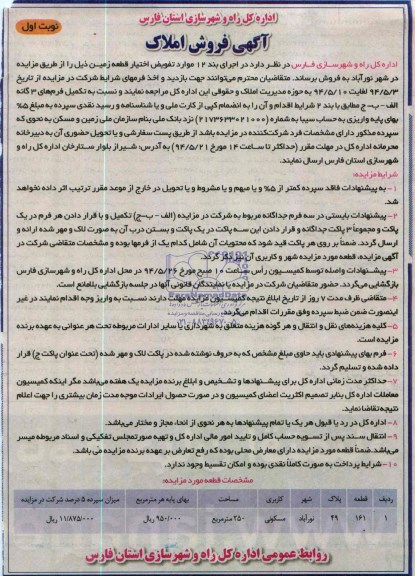 اداره کل راه و شهرسازی استان فارس
نوبت اول
آگهی فروش املاک
اداره کل راه و شهرسازی فارس در نظر دارد در اجرای بند ۱۲ موارد تفویض اختیار قطعه زمین ذیل را از طریق مزایده
در شهر نورآباد به فروش برساند. متقاضیان محترم می‌توانند جهت بازدید و اخذ فرمهای شرایط شرکت در مزایده از تاریخ
۹۴/۵/۳ لغایت ۹۴/۵/۱۰ به حوزه مدیریت املاک و حقوقی این اداره کل مراجعه نمایند و نسبت به تکمیل فرم‌های ۳ گانه
الف - ب - ج مطابق با بند ۲ شرایط اقدام و آن را به انضمام کپی از کارت ملی و یا شناسنامه و رسید نقدی سپرده به مبلغ ۵%
بهای پایه واریزی به حساب سیبا به شماره (۲۱۷۳۶۳۳۰۲۱۰۰۰) نزد بانک ملی بنام سازمان ملی زمین و مسکن به نحوی که
سپرده مذکور دارای مشخصات فرد شرکت‌کننده در مزایده باشد از طریق پست سفارشی و یا تحویل حضوری آن به دبیرخانه
محرمانه اداره کل در مهلت مقرر (حداکثر تا ساعت ۱۴ مورخ ۹۴/۵/۲۱) به آدرس: شیراز بلوار ستارخان اداره کل راه و
شهرسازی استان فارس ارسال نمایند.
شرایط مزایده:
۱- به پیشنهادات فاقد سپرده کمتر از ۵% و یا مبهم و یا مشروط و یا تحویل در خارج از موعد مقرر ترتیب اثر داده نخواهد
شد.
۲- پیشنهادات بایستی در سه فرم جداگانه مربوط به شرکت در مزایده (الف - ب - ج) تکمیل و با قرار دادن هر فرم در یک
پاکت و مجموعاً ۳ پاکت جداگانه و قرار دادن این سه پاکت در یک پاکت و بستن درب آن به صورت لاک و مهر شده ارائه و
ارسال گردد. ضمناً بر روی هر پاکت قید شود که محتویات آن شامل کدام یک از فرمها بوده و مشخصات متقاضی شرکت در
آگهی مزایده، قطعه مورد مزایده شهر و کاربری آن نیز ذکر گردد.
۳- پیشنهادات واصله توسط کمیسیون رأس ساعت ۱۰ صبح مورخ ۹۴/۵/۲۶ در محل اداره کل راه و شهرسازی فارس
بازگشایی می‌گردد. حضور متقاضیان شرکت در مزایده یا نمایندگان قانونی آنها در جلسه بازگشایی بلامانع است.
۴- متقاضی ظرف مدت ۷ روز از تاریخ ابلاغ نتیجه کمیسیون مزایده مهلت دارند نسبت به واریز وجه اقدام نمایند در غیر
اینصورت ضمن ضبط سپرده وفق مقررات اقدام می‌گردد.
۵- کلیه هزینه‌های نقل و انتقال و هر گونه هزینه متعلق به شهرداری یا سایر ادارات مربوطه تحت هر عنوانی به عهده برنده
مزایده است.
۶- فرم بهای پیشنهادی باید حاوی مبلغ مشخص که به حروف نوشته شده در پاکت لاک و مهر شده (تحت عنوان پاکت ج) قرار
داده شده و تسلیم گردد.
۷- حداکثر مدت زمانی اداره کل برای پیشنهادها و تشخیص و ابلاغ برنده مزایده یک هفته می‌باشد مگر اینکه کمیسیون
معاملات اداره کل بنابر تصمیم اکثریت اعضای کمیسیون و در صورت حصول ایرادات موجه مدت زمان بیشتری را جهت اعلام
نتیجه تقاضا نماید.
۸- اداره کل در رد یا قبول هر یک یا تمام پیشنهادها به هر نحوی از انحاء مجاز و مختار می‌باشد.
۹- انتقال سند پس از تسویه حساب کامل و تایید امور مالی اداره کل و تهیه صورتمجلس تفکیکی و اسناد مربوطه میسر
می‌باشد. ضمناً قطعه مورد مزایده دارای معارض محلی بوده که رفع تعارض بر عهده برنده مزایده می باشد.
۱۰- شرایط پرداخت به صورت کاملاً نقدی بوده و امکان تقسیط وجود ندارد.
مشخصات قطعه مورد مزایده:
ردیف قطعه پلاک شهر کاربری مساحت بهای پایه هر مترمربع میزان سپرده ۵ درصد شرکت در مزایده
۱ ۱۶۱ ۴۹ نورآباد مسکونی ۲۵۰ مترمربع ۹۵۰/۰۰۰ ریال ۱۱/۸۷۵/۰۰۰ ریال
روابط عمومی اداره کل راه و شهرسازی استان فارس